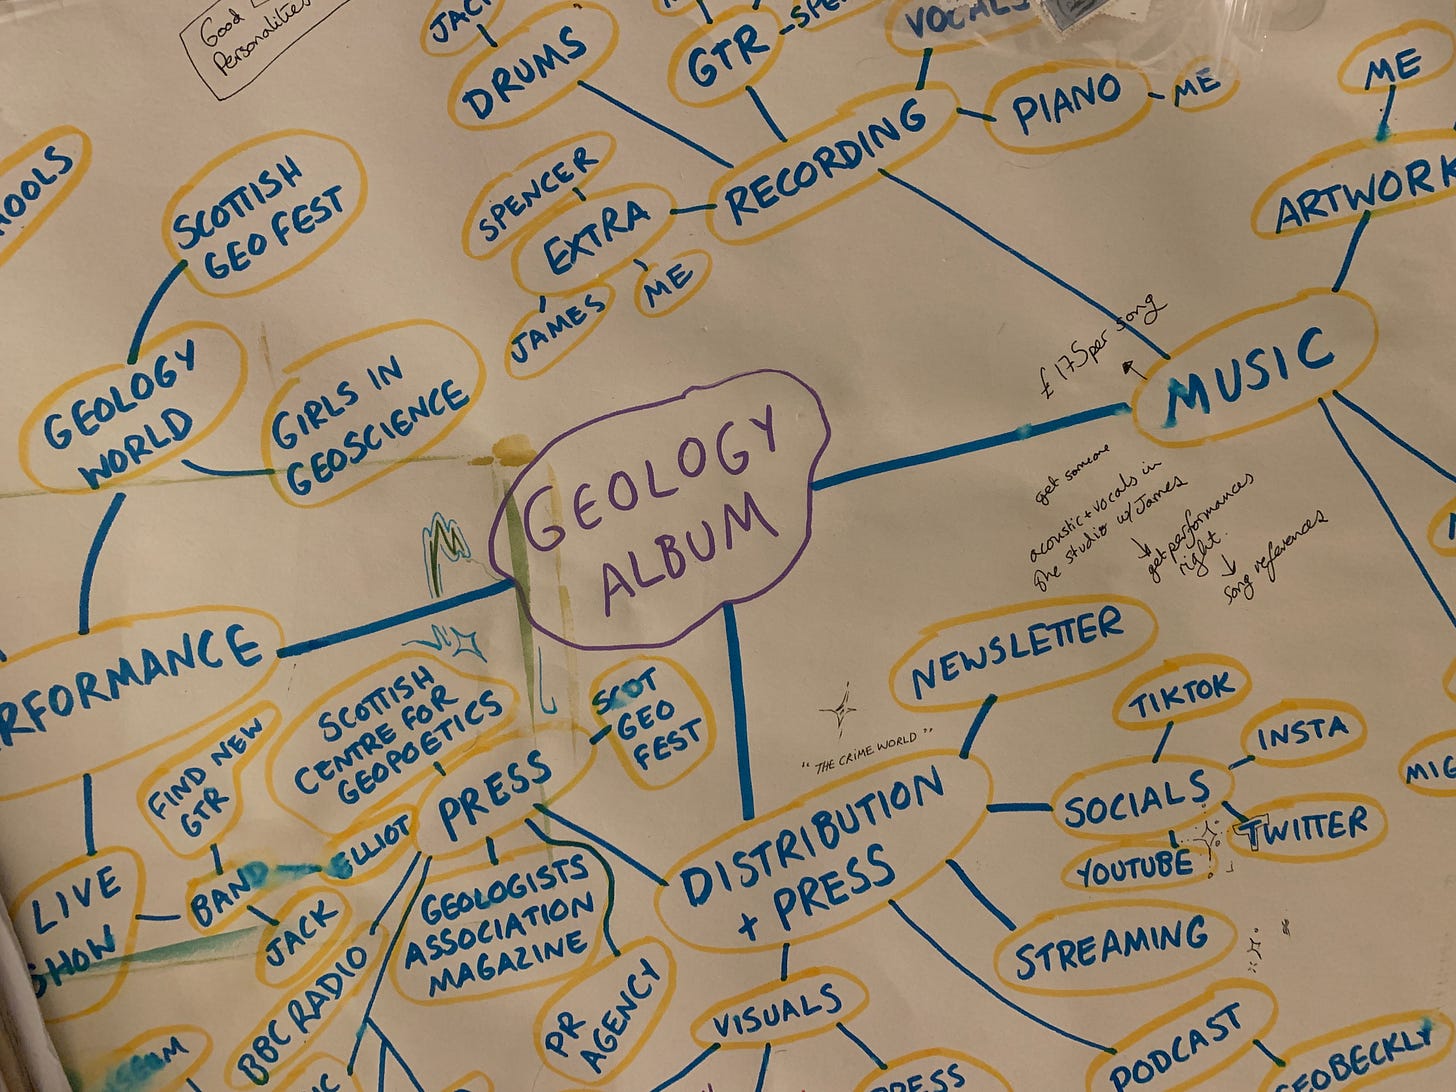 Good
Personalities
JACK
DRUMS
GTR
VOCALS
PIANO
ME
ME
ARTWORK
RECORDING
SPENCER
EXTRA
JAMES
ME
SCOTTISH
GEO FEST
GEOLOGY
WORLD
GIRLS IN
GEOSCIENCE
£175 per song
MUSIC
GEOLOGY
ALBUM
get someone
acoustic + vocals in
the studio w/ James
get performances
right.
song references
NEWSLETTER
TIKTOK
INSTA
SOCIALS
TWITTER
YOUTUBE
"THE CRIME WORLD"
DISTRIBUTION
+ PRESS
STREAMING
PODCAST
GEOBECKLY
VISUALS
PRESS
SCOTTISH
CENTRE FOR
GEOPOETICS
SCOT
GEO
FEST
PRESS
FIND NEW
GTR
BAND
ELLIOT
JACK
LIVE
SHOW
GEOLOGISTS
ASSOCIATION
MAGAZINE
BBC RADIO
PR
AGENCY